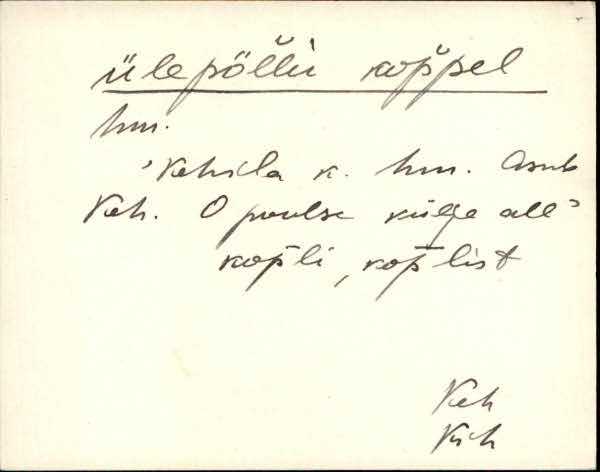 ülepõllu koppel
hm.
Kehila k. hm. Asub
Keh. O poolse külge all
kop̄li, kop̄list
Keh
Kih